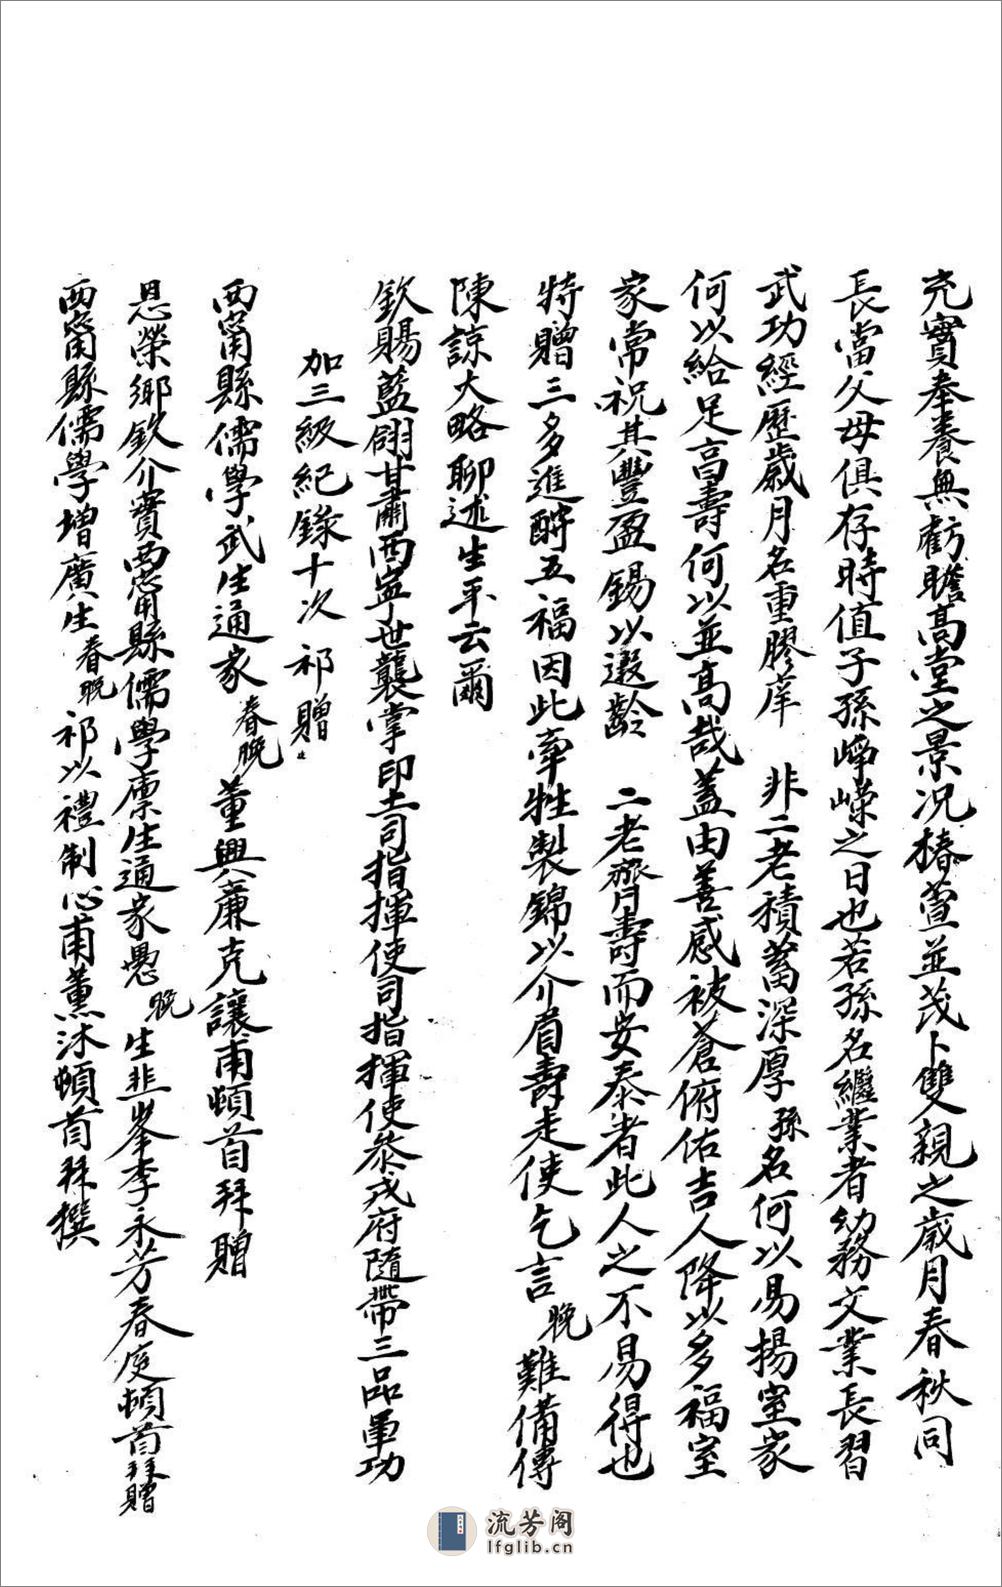 充實奉養無虧瞻高堂之景况椿萱並茂卜雙親之歲月春秋同
長當父母俱存時值子孫崢嶸之日也若孫名繼業者幼務文業長習
武功經歷歲月名重膠庠 非二老積蓄深厚孫名何以易揚室家
何以給足高壽何以並高哉蓋由善感被蒼俯佑吉人降以多福室
家常祝其豐盈錫以遐齡 二老齊壽而安泰者此人之不易得也
特贈三多進酧五福因此牽牲製錦以介眉壽走使乞言晚難備傳
陳諒大略聊述生平云爾
欽賜藍翎甘肅西寧世襲掌印土司指揮使司指揮使叅戎府隨帶三品軍功
加三級紀錄十次 祁贈
西甯縣儒學武生通家眷晚董興廉克讓甫頓首拜贈
恩榮鄉飲介賓西甯縣儒學廪生通家愚晚生韭峯李永芳春庭頓首拜贈
西甯縣儒學增廣生眷晚祁以禮制心甫薰沐頓首拜撰
流芳阁
lfglib.cn